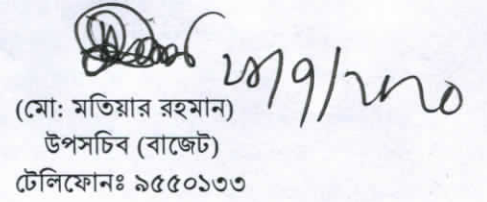 (মো: মতিয়ার রহমান)
উপসচিব (বাজেট)
টেলিফোনঃ ৯৫৫০১৩৩